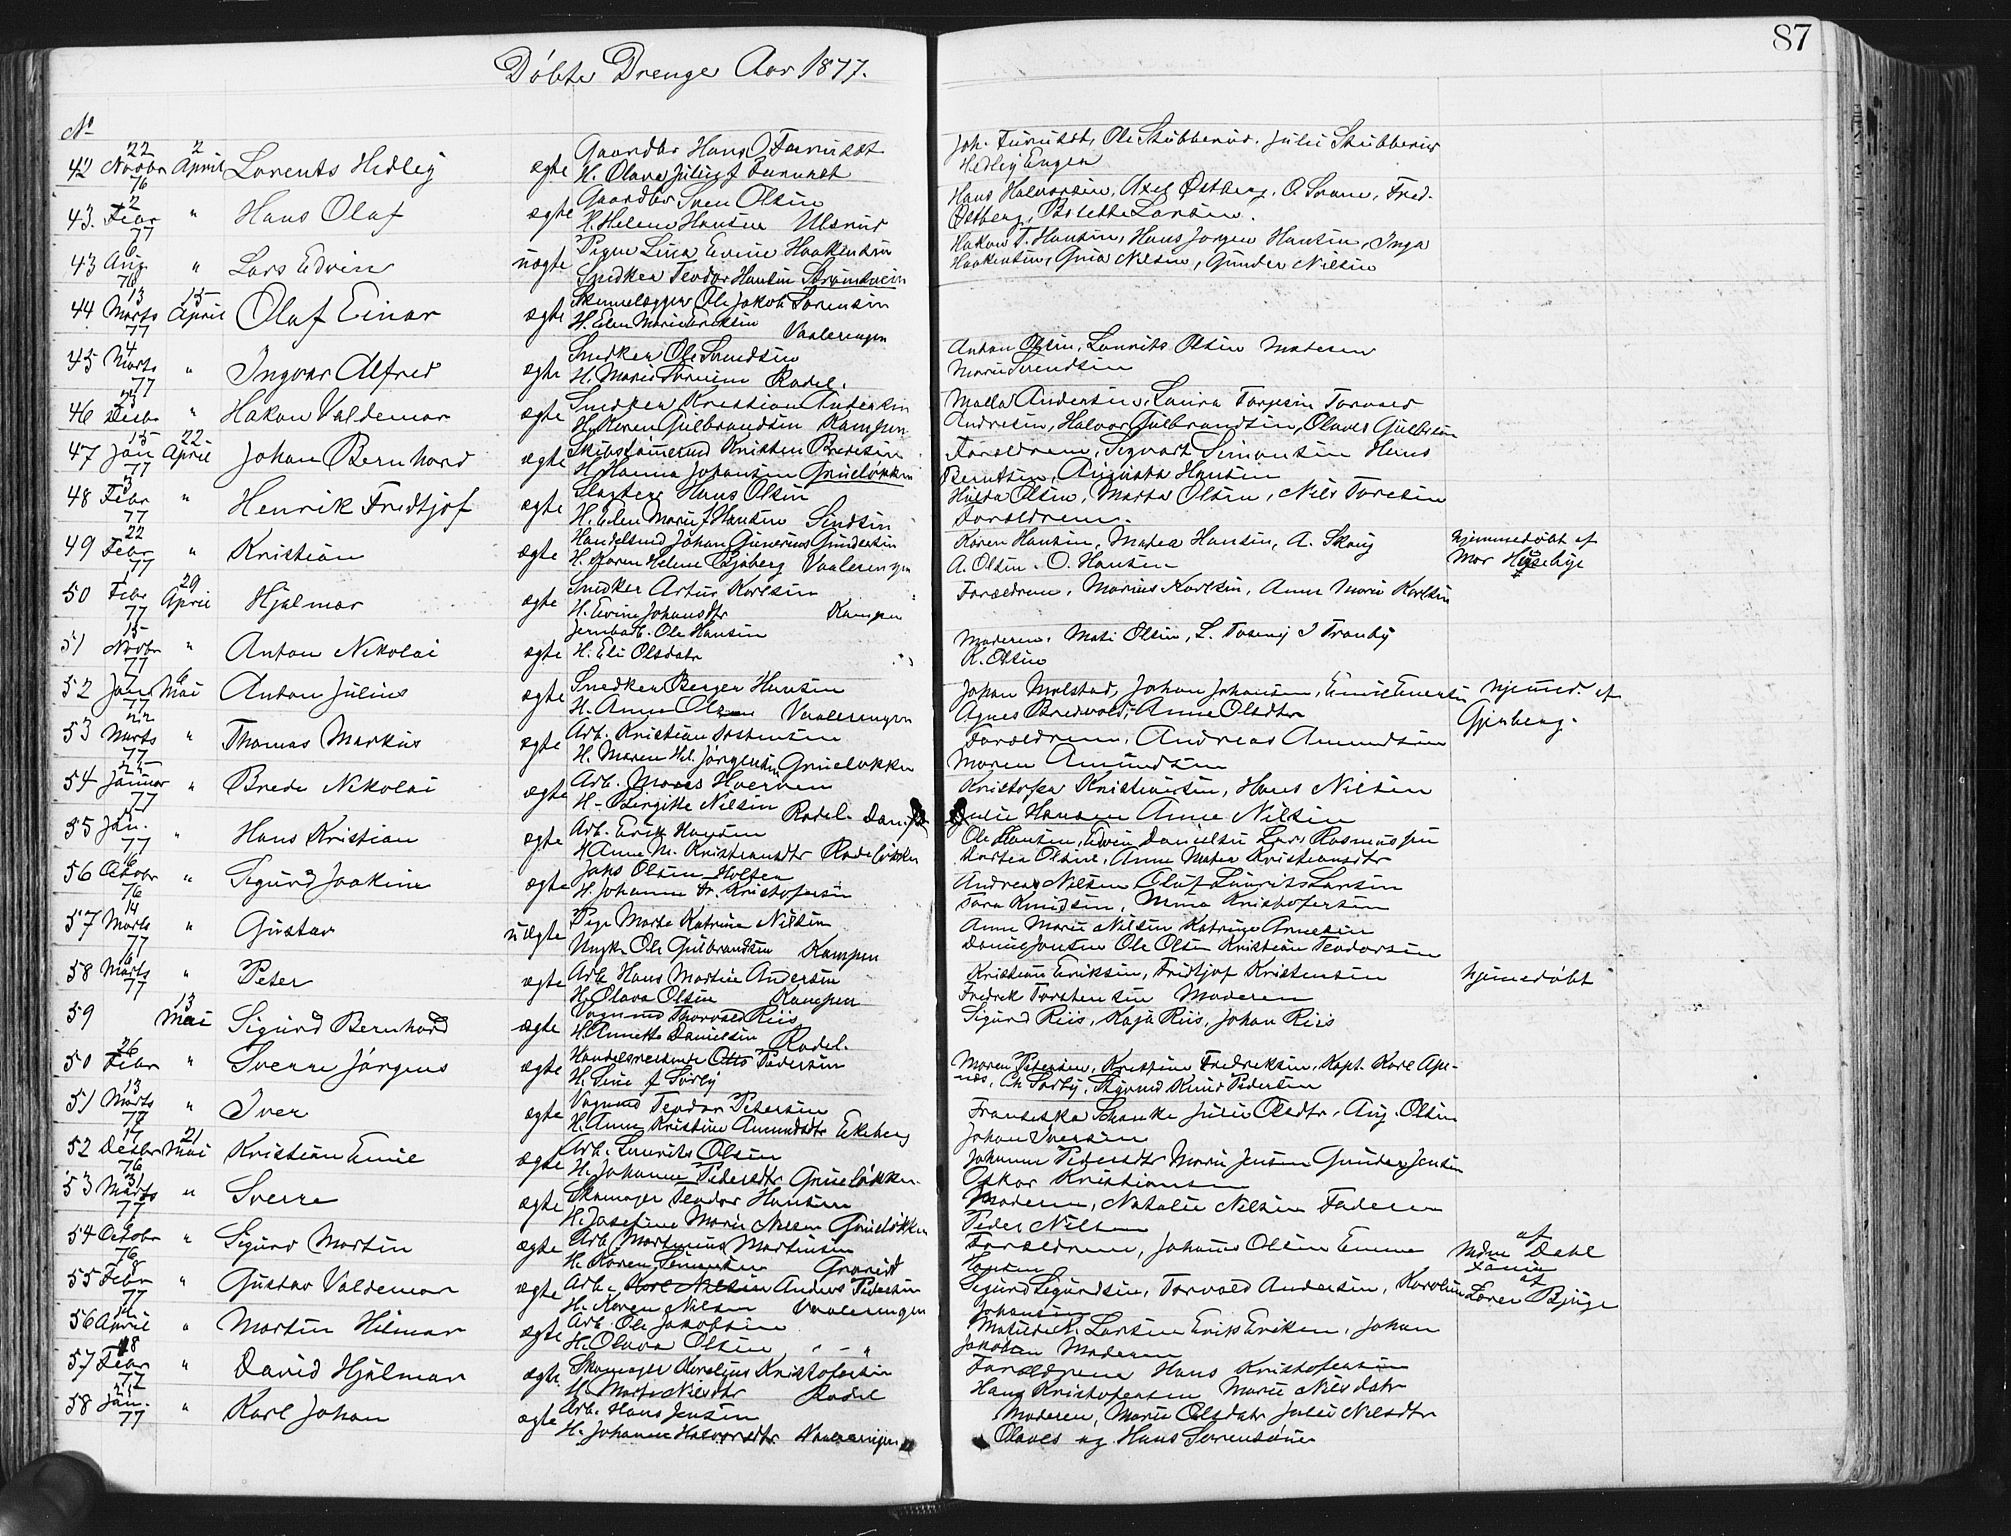 87
Døbte Drenge Aar 1877.
No
42 22 Novbr 76 2 April Lorents Hedley ægte Gaardbr Hans Furuset
H. Olava Julie f Furuset
Joh. Furuset, Ole Skubberud, Julie Skubberud
Hedley Eugen
43. 2 Febr 77 " Hans Olaf ægte Gaardbr Sven Olsen
H. Helene Hansen Ulsrud
Hans Halvorsen, Axel Østberg, O. Svane, Fred.
Østberg, Bolette Larsen.
43 6 Aug. 76 " Lars Edvin uægte Pigen Lina Evine Haakensen
Snedker Teodor Hansen Strømsveien
Hakon T. Hansen, Hans Jørgen Hansen, Inga
Haakensen, Guia Nilsen, Gunder Nilsen
44 13 Marts 77 15 April Olaf Einar ægte Ole Jakob Sørensen
H. Elen Marie Eriksen Vaalerengen
45 4 Marts 77 " Ingvar Alfred ægte Snedker Ole Svendsen
H. Marie Radel.
Anton Olsen, Laurits Olsen Moderen
Marie Svendsen
46 23 Desbr " Hakon Valdemar ægte Snedker Kristian Andersen
H. Karen Gulbrandsen Kampen
Malla Andersen, Laura Torgersen Torvald
Andresen, Halvor Gulbrandsen, Olaves Gulbrsen
47 15 Jan 77 22 April Johan Bernhard ægte Skibstømmermd Kristen Bredesen
H. Hanna Johansen Grueløkken
Forældrene, Sigvart Simonsen Hans
Berntsen, Augusta Hansen
48 3 Febr 77 " Henrik Fredtjof ægte Slagter Hans Olsen
H. Elen Marie f Hansen
Hulda Olsen, Marta Olsen, Nils Toresen
Forældrene.
49 22 Febr 77 " Kristian ægte Handelsmd Johan Gunerius Gundersen
H. Karen Helene Sjøberg Vaalerengen
Karen Hansen, Matea Hansen, A. Skaug
A. Olsen. O. Hansen
hjemmedøbt af
Mor Huseby
50 Febr 77 29 April Hjalmar ægte Snedker Artur Karlsen
H. Evine Johansdtr Kampen
Forældrene, Marius Karlsen, Anne Marie Karlsen
51 15 Novbr 77 " Anton Nikolai ægte Jernbarb. Ole Hansen
H. Eli Olsdatr
Moderen. Mati Olsen, L. Toseng I Tranby
K. Olsen
52 7 Jan 77 6 Mai Anton Julius ægte Snedker Berger Hansen
H. Anne Olsen Vaalerengen
Johan Molstad, Johan Johansen, Emil Evensen
Agnes Bredvold, Anne Olsdtr
hjemmd. af
Gjerberg.
53 22 Marts 77 " Thomas Markus ægte Arb. Kristian Tostensen
H. Maren Hel. Jørgensen Grueløkken
Forældrene, Andreas Amundsen
Maren Amundsen
54 25 Januar 77 " Brede Nikolai ægte Arb. Hverven
H. Birgitte Nilsen Radel.
Kristofer Kristiansen, Hans Nilsen
Julie Hansen Anne Nilsen
55 Jan. 77 " Hans Kristian ægte Arb. Erik Hansen
H Anne M. Kristiansdtr Radeløkken
Ole Hansen, Edvin Danielsen Lars Rasmussen
Dortea Olsen, Anne Matea Kristiansdtr
56 16 Octobr 76 " Sigurd Joakim ægte Jaks Olsen Holter
H. Johanne fr. Kristofersen
Andreas Nilsen Oluf Laurits Larsen
Sara Knudsen, Mina Kristofersen
57 14 Marts 77 " Gustav uægte Pige Marte Katrine Nilsen
Ungk. Ole Gulbrandsen Kampen
Anne Marie Nilsen Katrine Arnesen
Daniel Jonsen Ole Olsen Kristian Teodorsen
58 6 Marts 77 " Peter ægte Arb. Hans Martin Andersen
H. Olava Olsen Kampen
Kristian Eriksen, Fridtjof Kristensen
Fredrik Torstensen Moderen
hjemmedøbt
59 13 Mai Sigurd Bernhard ægte Vognmd Thorvald Riis
H. Annette Danielsen Radel.
Sigurd Riis, Kaja Riis, Johan Riis
50 26 Febr " Sverre Jørgens ægte Handelsreisende Otto Pedersen
H. Sine f Sørby
Maren Petersen, Kristine Fredriksen, Kapt. Karl Ape-
næs, Ch Sørby, Sigvard Knud Pedersen
51 13 Marts 77 " Iver ægte Vognmd Teodor Petersen
H. Anne Kristine Amundsdtr Ekeberg
Franciska Schanke Julie Olsdtr, Aug. Olsen
Johan Iversen
52 17 Desbr 76 21 Mai Kristian Emil ægte Arb. Laurits Olsen
H. Johanne Pedersdtr Grueløkken.
Johanne Pedersdtr Marie Jensen Gunder Jensen
Oskar Kristiansen
53 31 Marts 77 " Sverre ægte Skomager Teodor Hansen
H. Josefine Marie Nilsen Grueløkken
Moderen, Natalie Nilsen Faderen
Peder Nilsen
54 9 Octobr 76 " Sigurd Martin ægte Arb. Martinius Martinsen
H. Karen Simensen
Forældrene, Johannes Olsen Emma
Hansen
af
Mdm Dahl
55 8 Febr 77 " Gustav Valdemar ægte Arb. Karl Nilsen Anders Pedersen
H. Karen Nilsen Vaalerengen
Sigurd Sigurdsen, Torvald Andersen, Karoline
Johansen
af
Loren Bjuge
56 14 April " Martin Hilmar ægte Arb. Ole Jakobsen
H. Olava Olsen " - "
Matilde K. Larsen Erik Eriksen, Johan
Jakobsen Moderen
57 18 Febr 77 " David Hjalmar ægte Skomager Kornelius Kristofersen
H. Marte Nilsdtr Radel
Forældrene Hans Kristofersen
Hans Kristofersen Marie Nilsdatr
58 21 Jan. 77 " Karl Johan ægte Arb. Hans Jensen
H. Johanne Halvorsdtr Vaalerengen
Moderen, Marie Olsdatr Julie Nilsdtr
Olaves og Hans Sørensønner